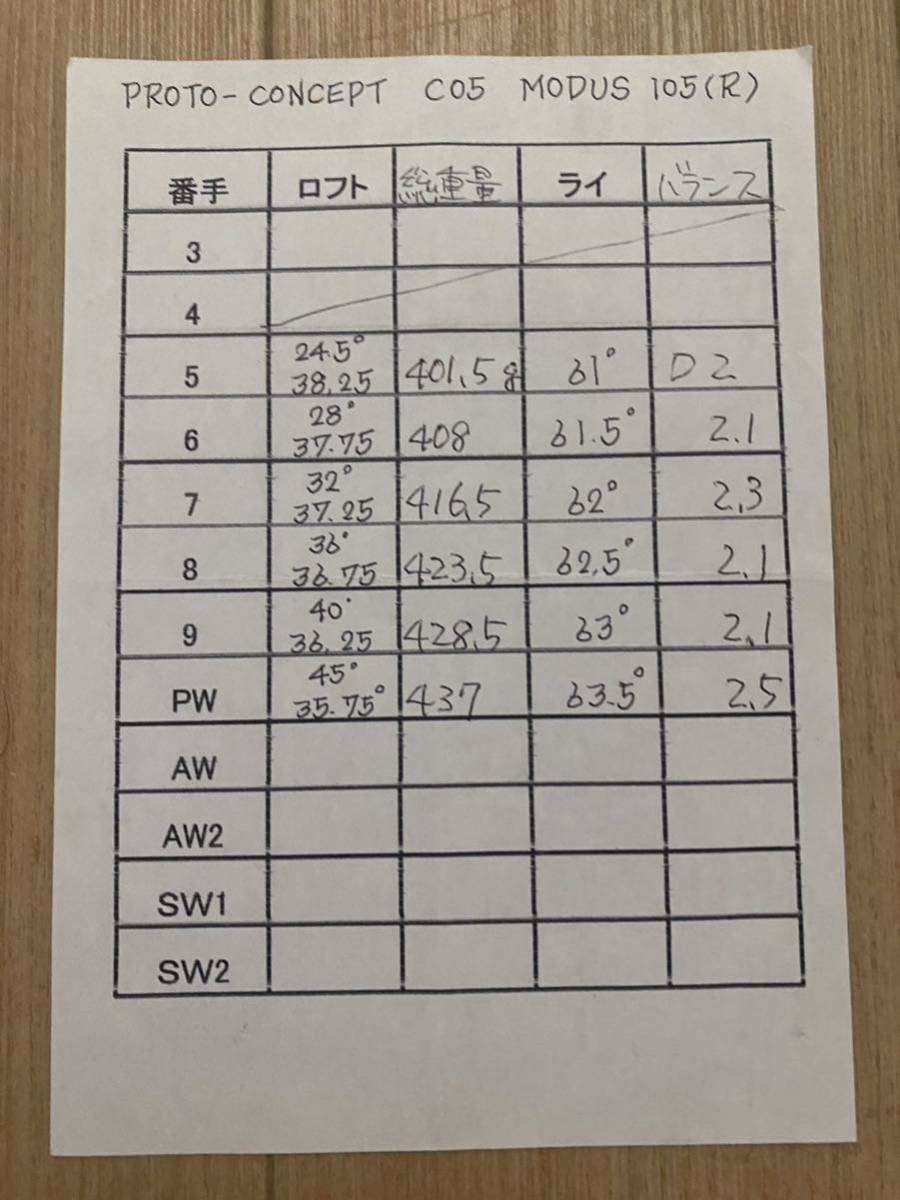 PROTO-CONCEPT C05 MODUS 105(R)
番手 ロフト 総重量 ライ バランス
3
4
5 24.5° 38.25 401.5g 61° D2
6 28° 37.75 408 61.5° 2.1
7 32° 37.25 416.5 62° 2.3
8 36° 36.75 423.5 62.5° 2.1
9 40° 36.25 428.5 63° 2.1
PW 45° 35.75° 437 63.5° 2.5
AW
AW2
SW1
SW2